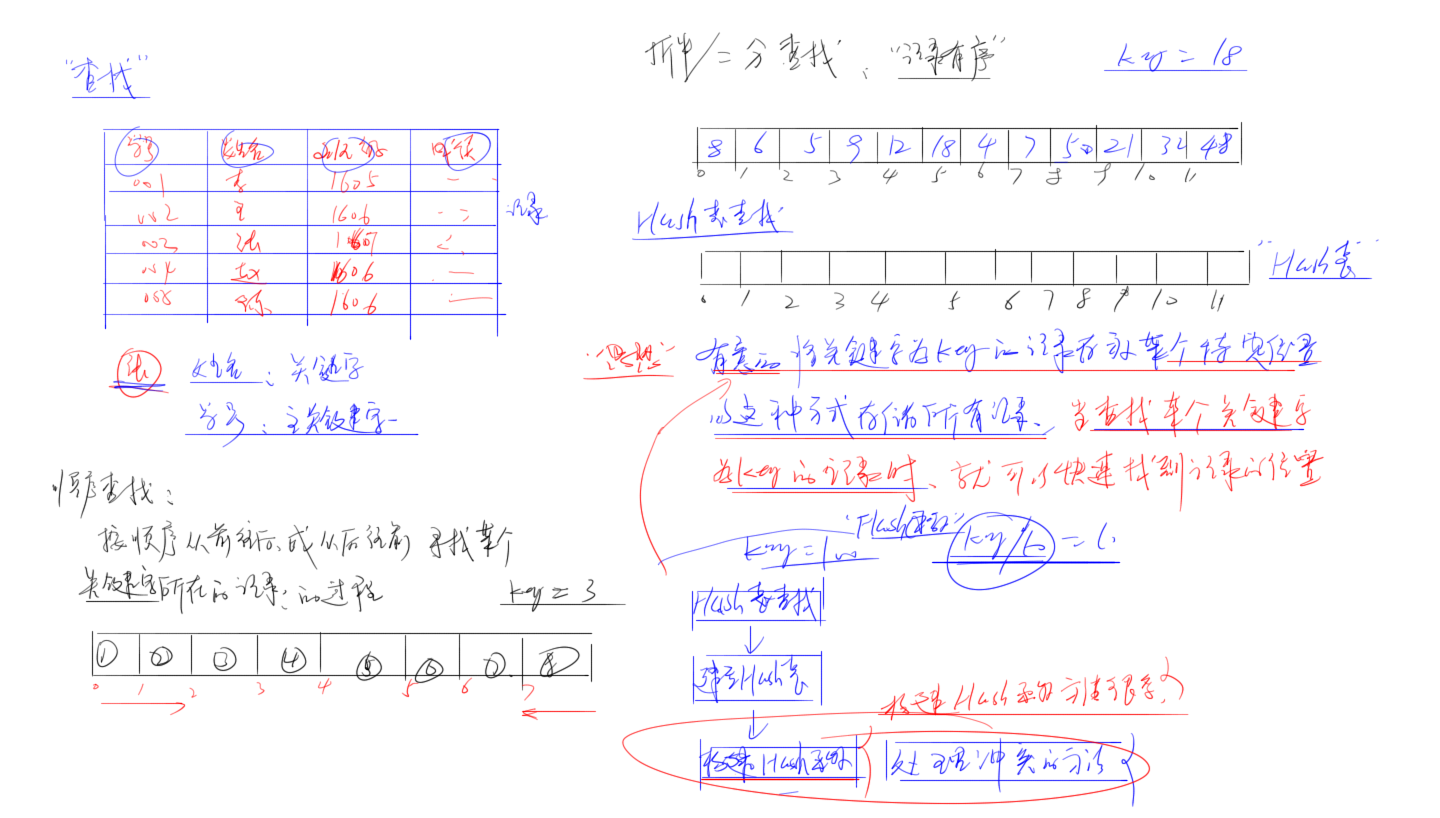 "查找"
学号 姓名 班级 成绩
001 李 1605
002 王 1606
003 张 1607
004 赵 1606
005 1606
记录
张 姓名：关键字
学号：主关键字
顺序查找：
按顺序从前往后、或从后往前 寻找某个
关键字所在的记录的过程
key = 3
① ② ③ ④ ⑤ ⑥ ⑦ ⑧
0 1 2 3 4 5 6 7
折半/二分查找： "记录有序" key = 18
8 6 5 9 12 18 4 7 50 21 32 48
0 1 2 3 4 5 6 7 8 9 10 11
Hash表查找
"Hash表"
0 1 2 3 4 5 6 7 8 9 10 11
"思想" 有意的将关键字为key的记录存放某个特定位置
以这种方式存储所有记录、当查找某个关键字
为key的记录时、就可以快速找到记录的位置
"Hash函数"
key = 100
Hash表查找
建立Hash表
构建Hash函数的方法很多
构建Hash函数 处理冲突的方法